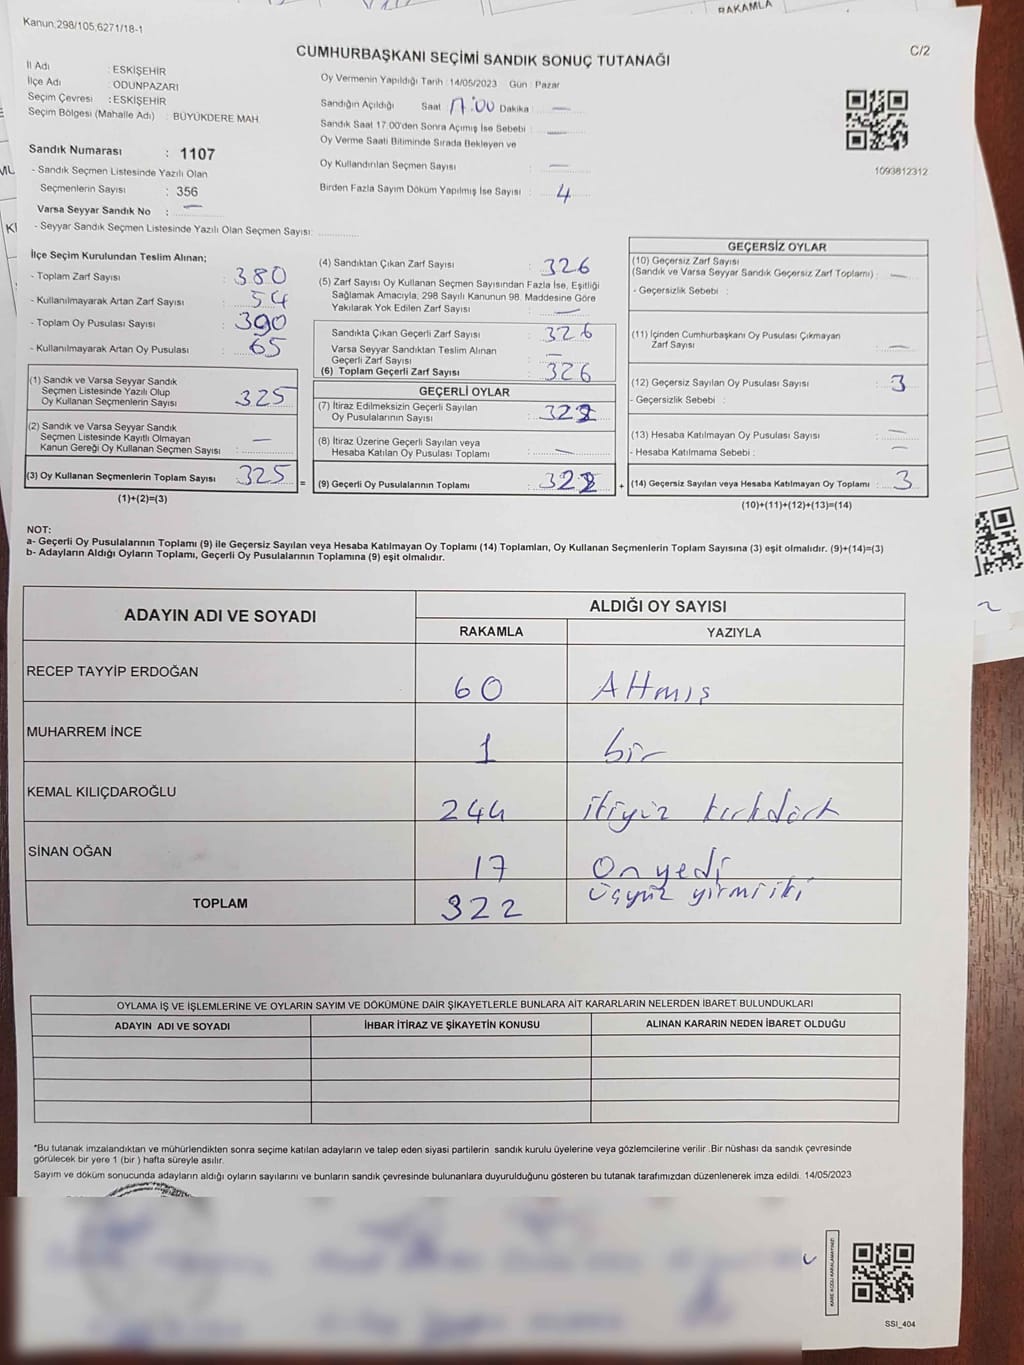 RAKAMLA
Kanun,298/105,6271/18-1
C/2
CUMHURBAŞKANI SEÇİMİ SANDIK SONUÇ TUTANAĞI
İl Adı : ESKİŞEHİR
İlçe Adı : ODUNPAZARI
Seçim Çevresi : ESKİŞEHİR
Seçim Bölgesi (Mahalle Adı) : BÜYÜKDERE MAH
Sandık Numarası : 1107
- Sandık Seçmen Listesinde Yazılı Olan
Seçmenlerin Sayısı : 356
Varsa Seyyar Sandık No : —
- Seyyar Sandık Seçmen Listesinde Yazılı Olan Seçmen Sayısı:
Oy Vermenin Yapıldığı Tarih : 14/05/2023 Gün : Pazar
Sandığın Açıldığı Saat 17:00 Dakika : —
Sandık Saat 17:00'den Sonra Açımış İse Sebebi : —
Oy Verme Saati Bitiminde Sırada Bekleyen ve
Oy Kullandırılan Seçmen Sayısı : —
Birden Fazla Sayım Döküm Yapılmış İse Sayısı : 4
1093812312
İlçe Seçim Kurulundan Teslim Alınan;
- Toplam Zarf Sayısı : 380
- Kullanılmayarak Artan Zarf Sayısı : 54
- Toplam Oy Pusulası Sayısı : 390
- Kullanılmayarak Artan Oy Pusulası : 65
(1) Sandık ve Varsa Seyyar Sandık
Seçmen Listesinde Yazılı Olup
Oy Kullanan Seçmenlerin Sayısı : 325
(2) Sandık ve Varsa Seyyar Sandık
Seçmen Listesinde Kayıtlı Olmayan
Kanun Gereği Oy Kullanan Seçmen Sayısı : —
(3) Oy Kullanan Seçmenlerin Toplam Sayısı : 325
(1)+(2)=(3)
=
(4) Sandıktan Çıkan Zarf Sayısı : 326
(5) Zarf Sayısı Oy Kullanan Seçmen Sayısından Fazla İse, Eşitliği
Sağlamak Amacıyla; 298 Sayılı Kanunun 98. Maddesine Göre
Yakılarak Yok Edilen Zarf Sayısı : —
Sandıkta Çıkan Geçerli Zarf Sayısı : 326
Varsa Seyyar Sandıktan Teslim Alınan
Geçerli Zarf Sayısı : —
(6) Toplam Geçerli Zarf Sayısı : 326
GEÇERLİ OYLAR
(7) İtiraz Edilmeksizin Geçerli Sayılan
Oy Pusulalarının Sayısı : 322
(8) İtiraz Üzerine Geçerli Sayılan veya
Hesaba Katılan Oy Pusulası Toplamı : —
(9) Geçerli Oy Pusulalarının Toplamı : 322
+
GEÇERSİZ OYLAR
(10) Geçersiz Zarf Sayısı
(Sandık ve Varsa Seyyar Sandık Geçersiz Zarf Toplamı) : —
- Geçersizlik Sebebi :
(11) İçinden Cumhurbaşkanı Oy Pusulası Çıkmayan
Zarf Sayısı : —
(12) Geçersiz Sayılan Oy Pusulası Sayısı : 3
- Geçersizlik Sebebi :
(13) Hesaba Katılmayan Oy Pusulası Sayısı : —
- Hesaba Katılmama Sebebi : —
(14) Geçersiz Sayılan veya Hesaba Katılmayan Oy Toplamı : 3
(10)+(11)+(12)+(13)=(14)
NOT:
a- Geçerli Oy Pusulalarının Toplamı (9) ile Geçersiz Sayılan veya Hesaba Katılmayan Oy Toplamı (14) Toplamları, Oy Kullanan Seçmenlerin Toplam Sayısına (3) eşit olmalıdır. (9)+(14)=(3)
b- Adayların Aldığı Oyların Toplamı, Geçerli Oy Pusulalarının Toplamına (9) eşit olmalıdır.
ADAYIN ADI VE SOYADI ALDIĞI OY SAYISI
RAKAMLA YAZIYLA
RECEP TAYYİP ERDOĞAN 60 Altmış
MUHARREM İNCE 1 bir
KEMAL KILIÇDAROĞLU 244 ikiyüz kırkdört
SİNAN OĞAN 17 Onyedi
TOPLAM 322 üçyüz yirmi iki
OYLAMA İŞ VE İŞLEMLERİNE VE OYLARIN SAYIM VE DÖKÜMÜNE DAİR ŞİKAYETLERLE BUNLARA AİT KARARLARIN NELERDEN İBARET BULUNDUKLARI
ADAYIN ADI VE SOYADI İHBAR İTİRAZ VE ŞİKAYETİN KONUSU ALINAN KARARIN NEDEN İBARET OLDUĞU
*Bu tutanak imzalandıktan ve mühürlendikten sonra seçime katılan adayların ve talep eden siyasi partilerin sandık kurulu üyelerine veya gözlemcilerine verilir .Bir nüshası da sandık çevresinde
görülecek bir yere 1 (bir ) hafta süreyle asılır.
Sayım ve döküm sonucunda adayların aldığı oyların sayılarını ve bunların sandık çevresinde bulunanlara duyurulduğunu gösteren bu tutanak tarafımızdan düzenlenerek imza edildi. 14/05/2023
KARE KODU KARALAMAYINIZ!
SSI_404